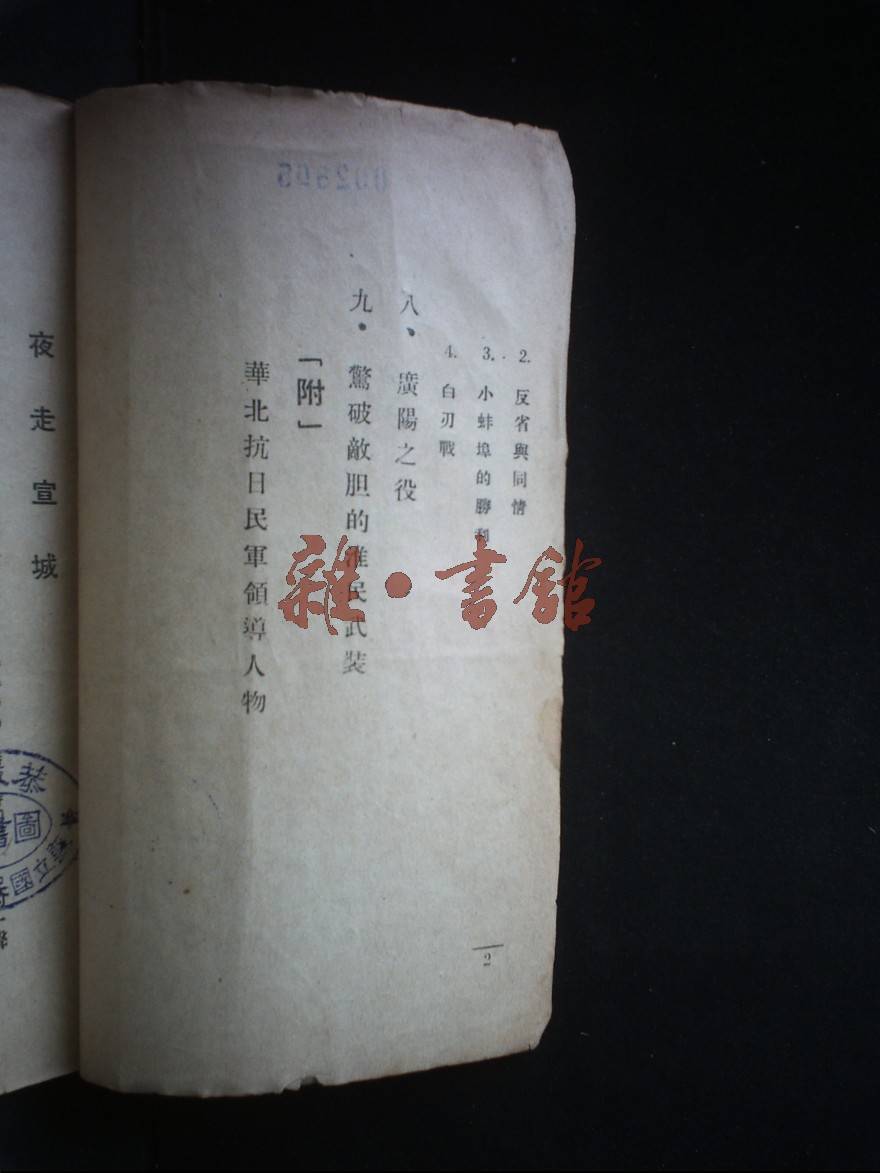 2. 反省與同情
3. 小蚌埠的勝利
4. 白刃戰
八、廣陽之役
九．驚破敵胆的淮民武装
「附」
華北抗日民軍領導人物
2
夜走宣城
雜·書館